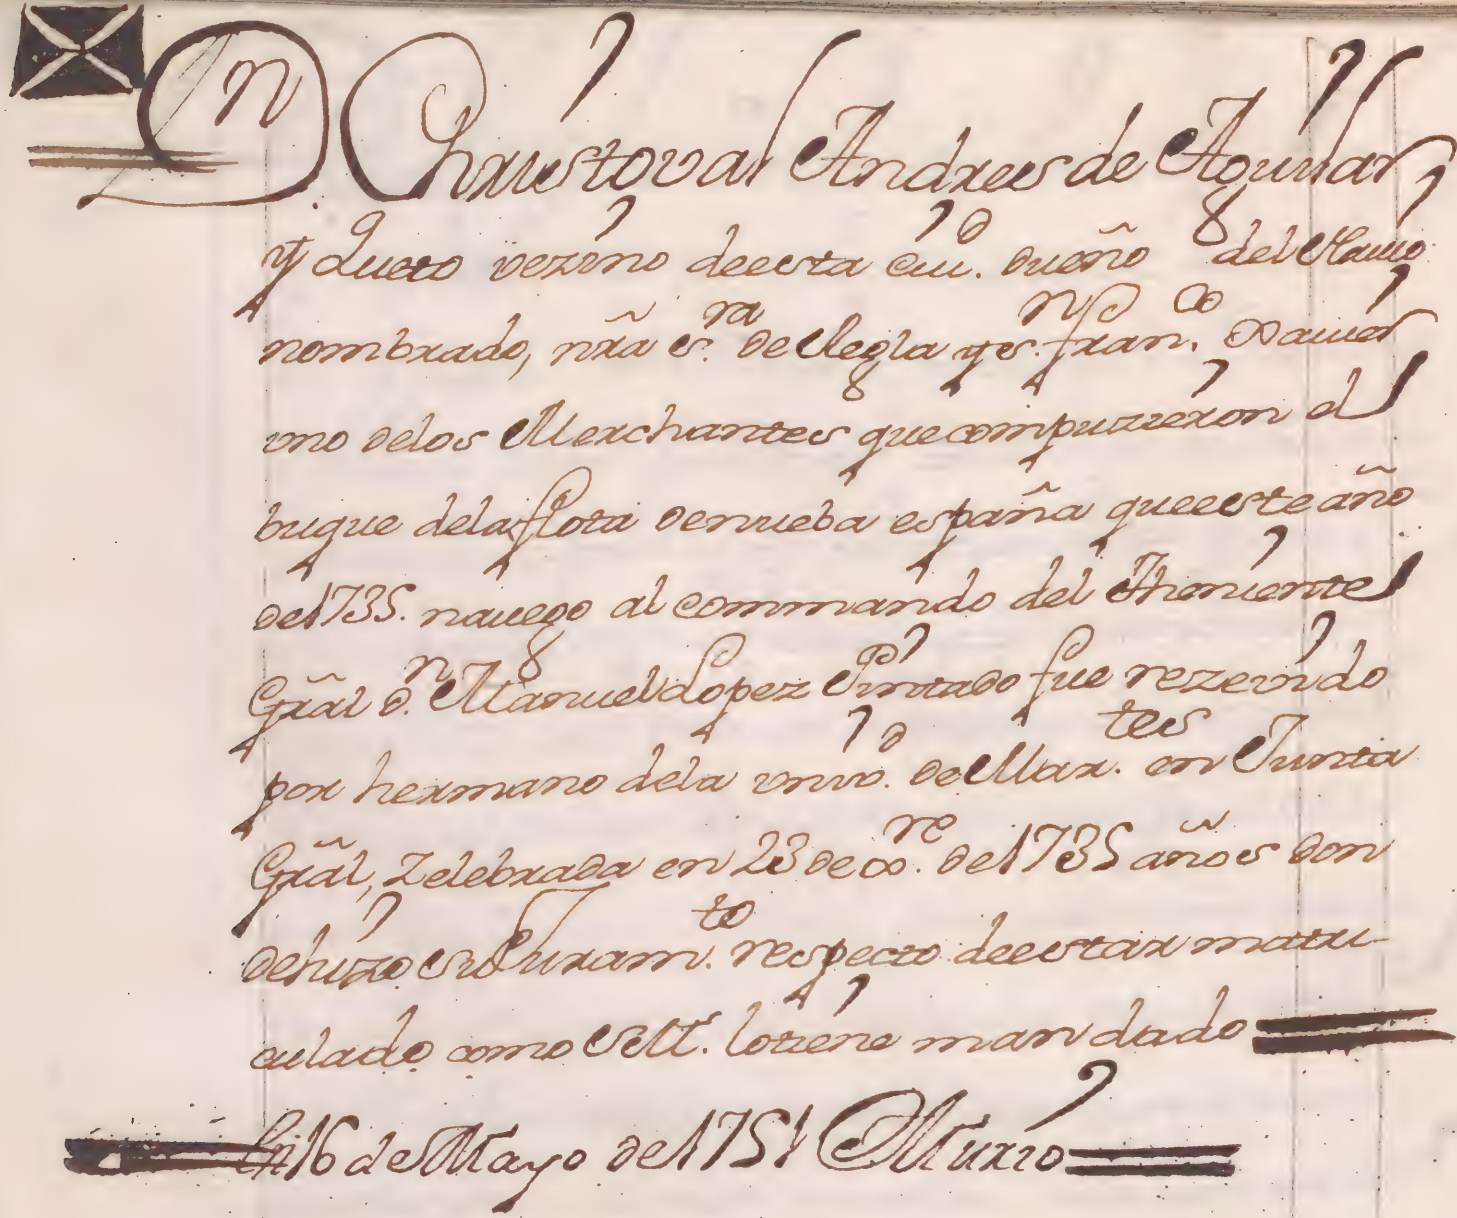 Dn Christoval Andres de Aguilar
y Lueto vezino deesta ciud. dueño del Navio
nombrado, nra sra. de Regla y sn. Franco. Xavier
uno delos Merchantes que compuzieron el
buque dela flota denueba españa queeste año
de 1735. navego al commando del Theniente
Gral dn. Manuel Lopez Pintado fue rezevido
por hermano dela univd. de Martes. en Junta
Gral, Zelebrada en 23 de 8re. de 1735 años don
dehizo su Juramto. respecto deestar matri-
culado como S.M. lotiene mandado
En 16 de Mayo de 1751 Murio